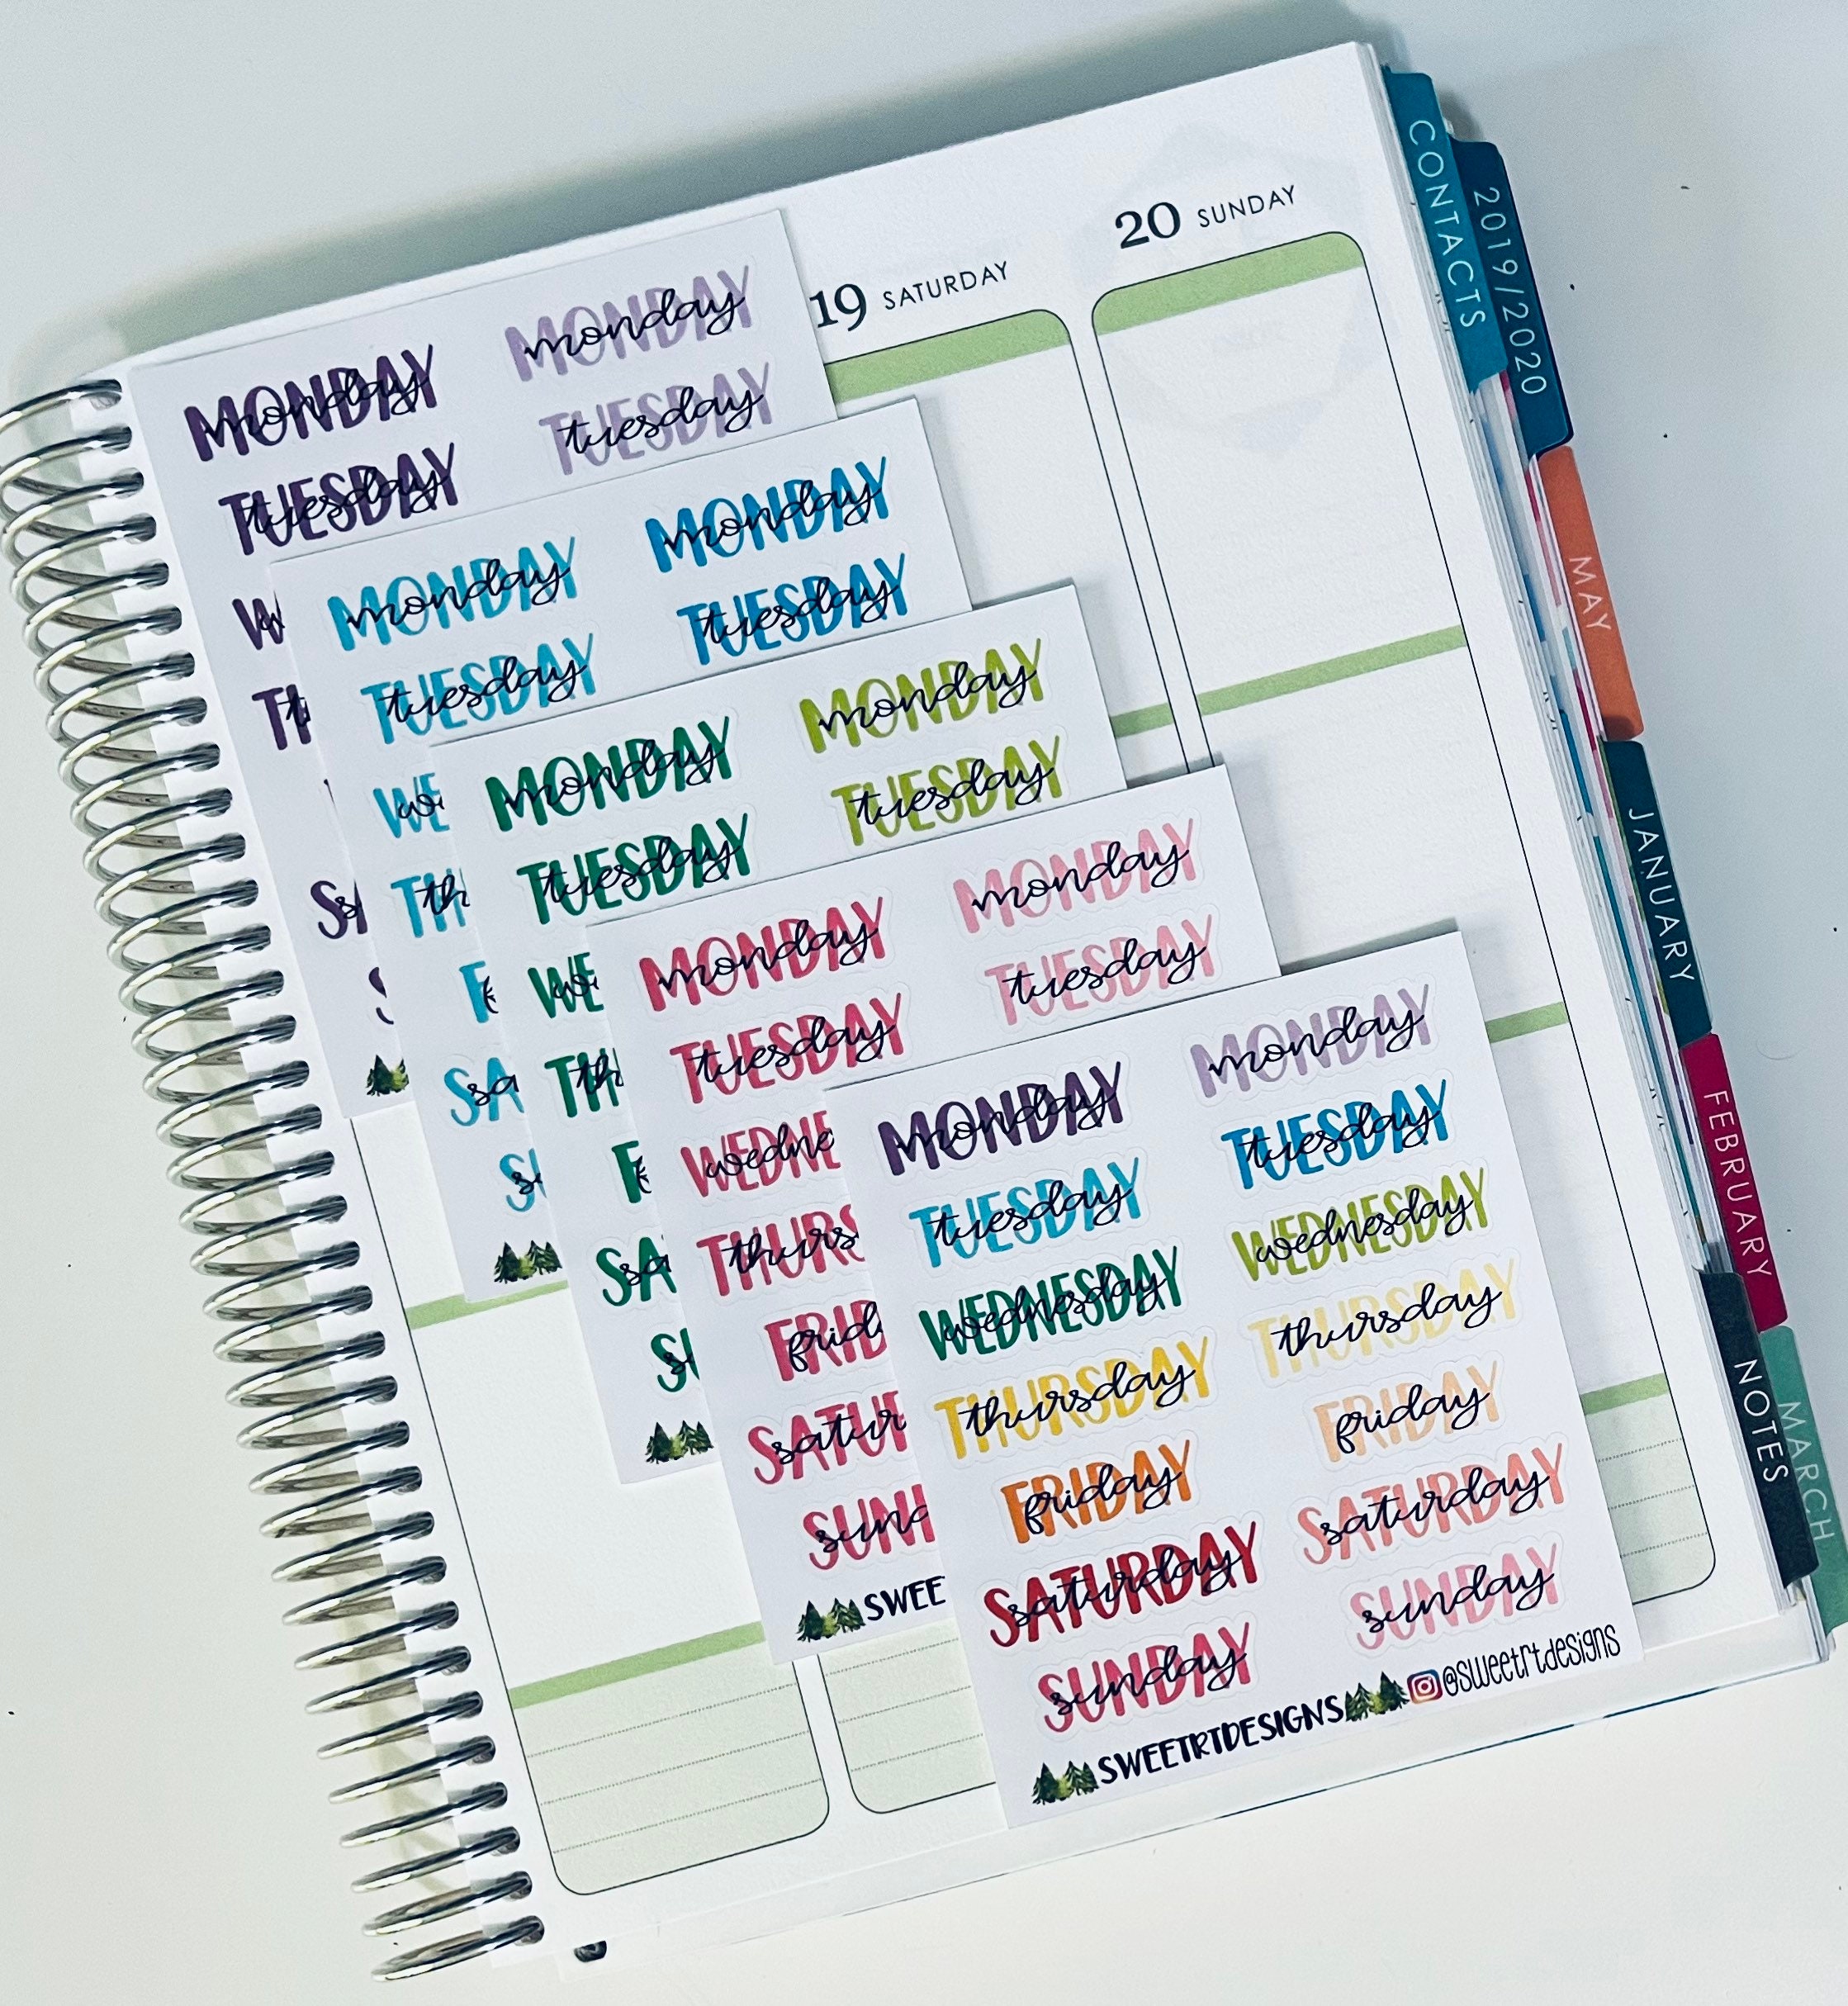 20 SUNDAY
19 SATURDAY
CONTACTS
2019/2020
MAY
JANUARY
FEBRUARY
NOTES
MARCH
MONDAY monday MONDAY monday
TUESDAY tuesday TUESDAY tuesday
MONDAY monday MONDAY monday
TUESDAY tuesday TUESDAY tuesday
MONDAY monday MONDAY monday
TUESDAY tuesday TUESDAY tuesday
MONDAY monday MONDAY monday
TUESDAY tuesday TUESDAY tuesday
WEDNE wedne
THURS thurs
FRID frid
SATUR satur
SUN sun
SWEE
MONDAY monday MONDAY monday
TUESDAY tuesday TUESDAY tuesday
WEDNESDAY wednesday WEDNESDAY wednesday
THURSDAY thursday THURSDAY thursday
FRIDAY friday FRIDAY friday
SATURDAY saturday SATURDAY saturday
SUNDAY sunday SUNDAY sunday
SWEETRTDESIGNS @sweetrtdesigns